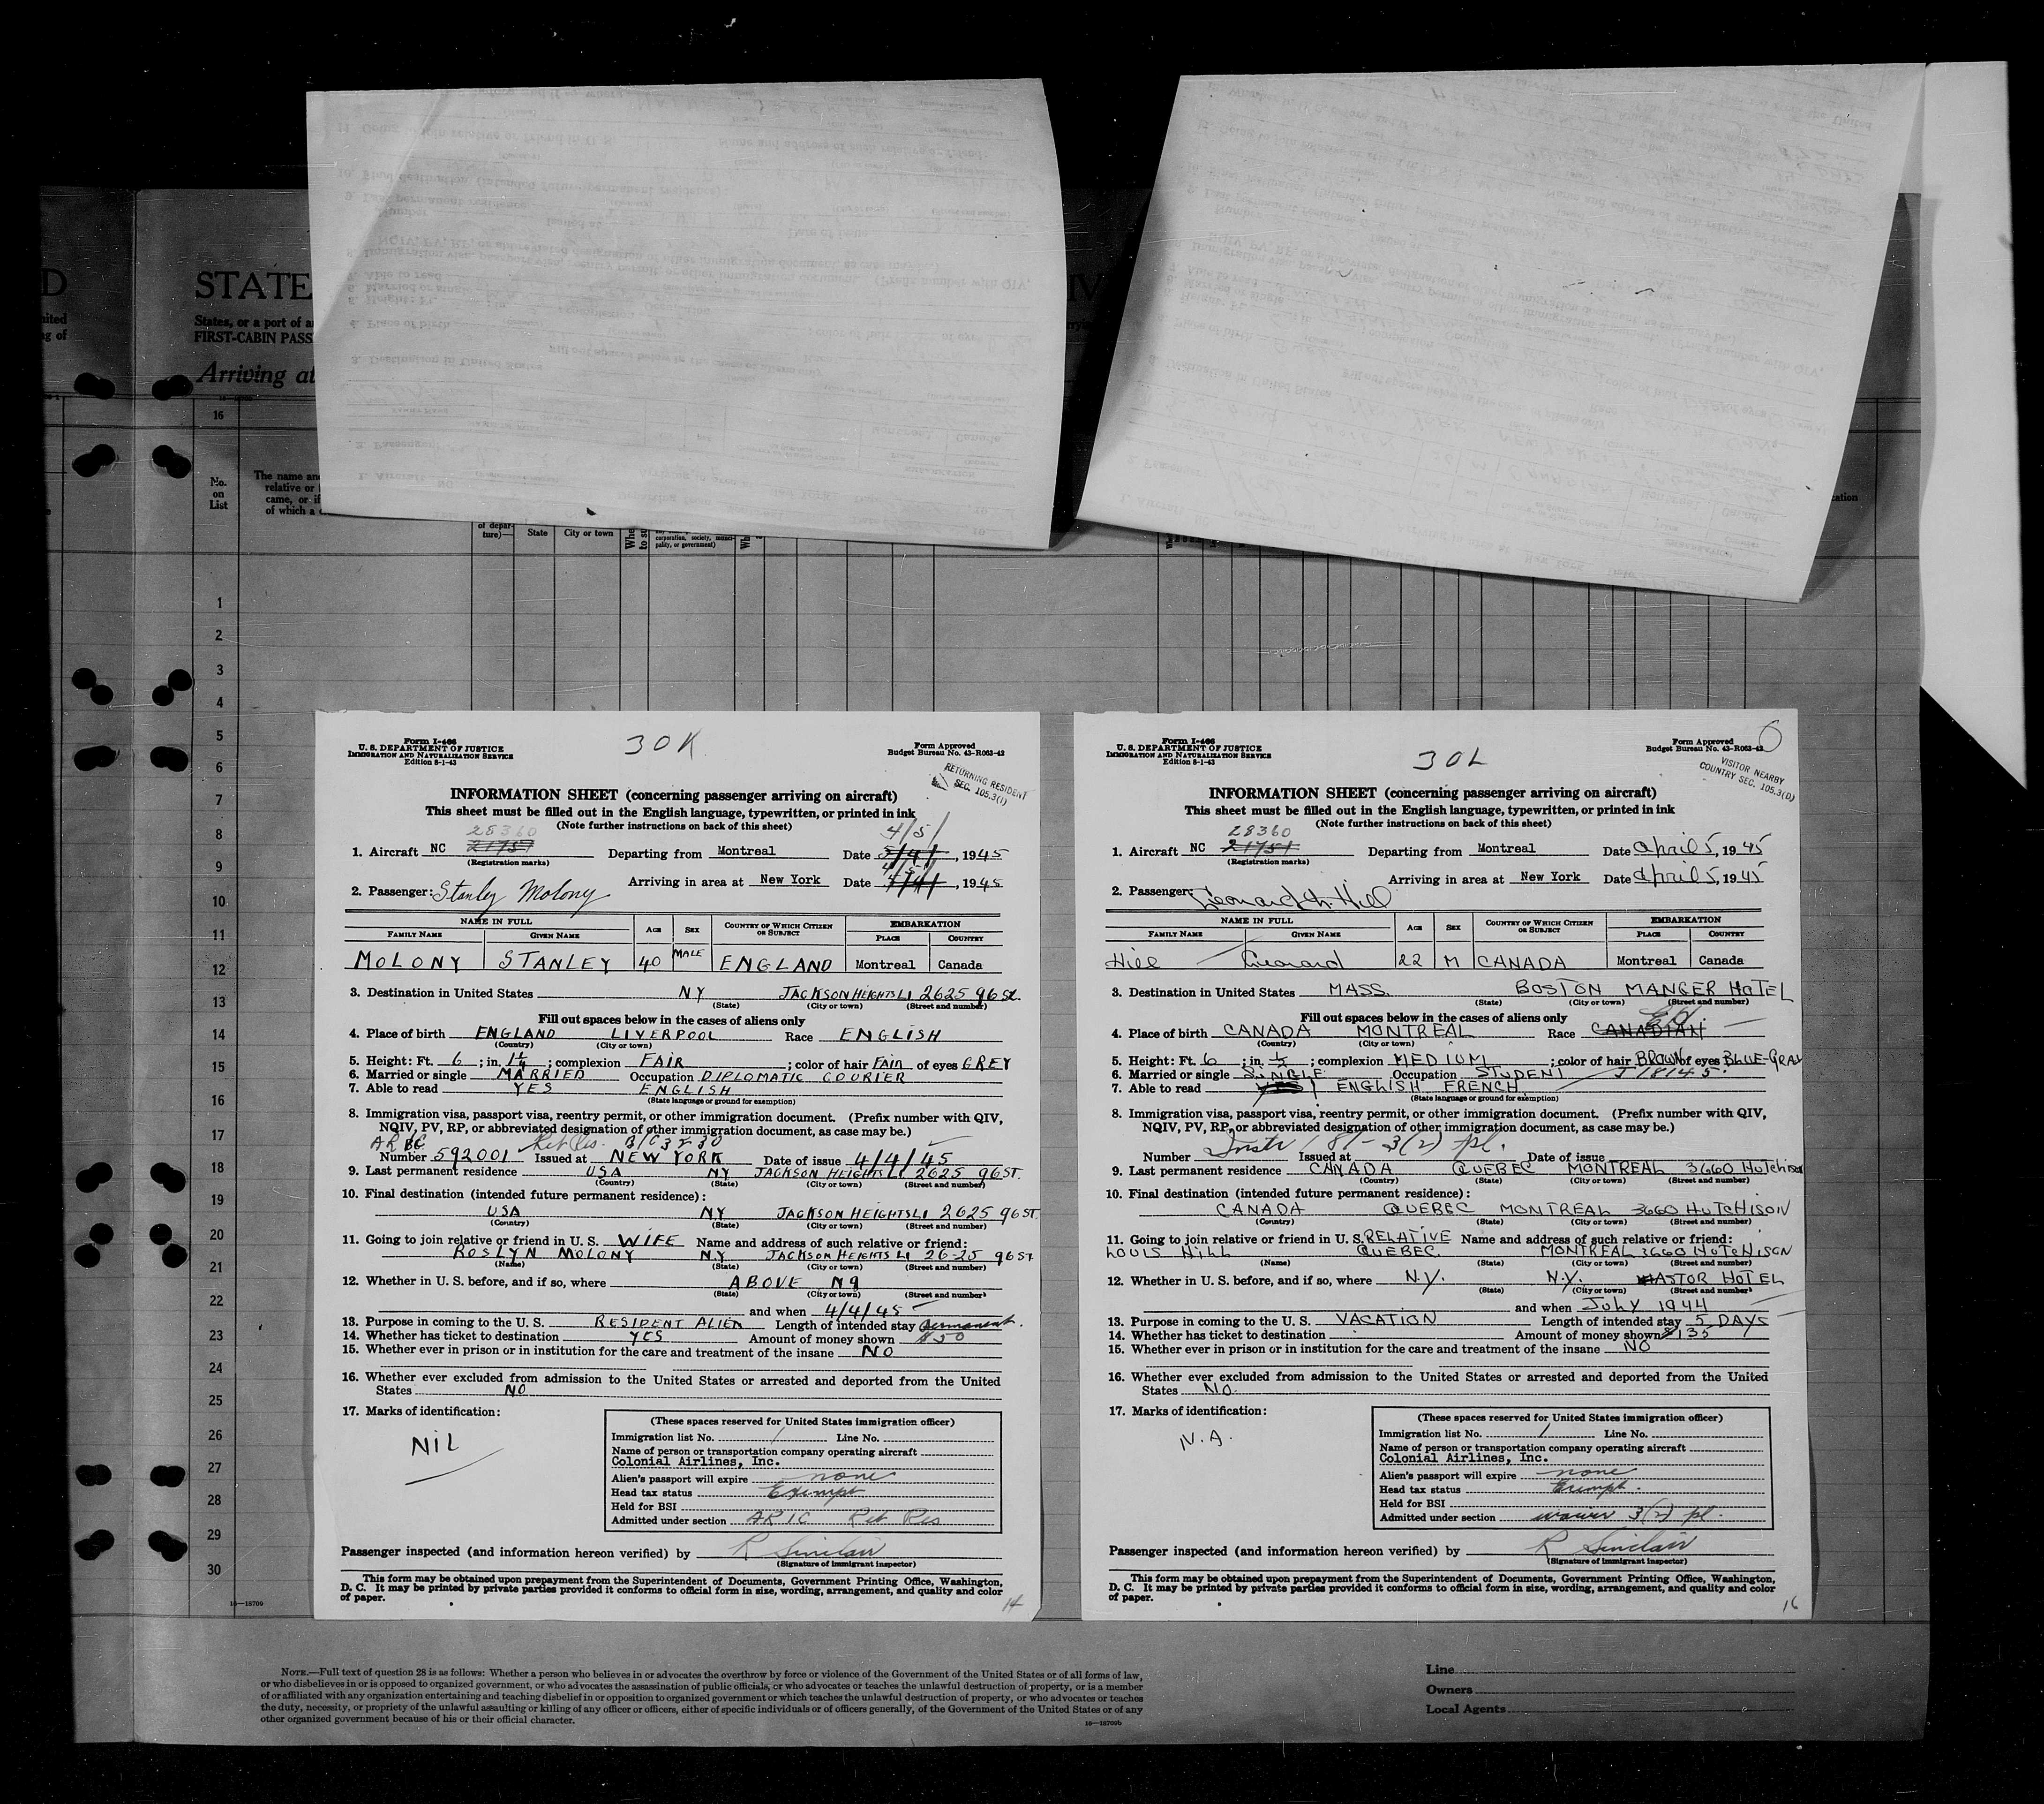 D
STATE
IV
States, or a port of a
FIRST-CABIN PASS
Arriving at
16
No.
on
List
The name an
relative or
came, or if
of which a
of depar-
ture)—
State
City or town
corporation, society, munici-
pality, or government)
1
2
3
4
5
6
7
8
9
10
11
12
13
14
15
16
17
18
19
20
21
22
23
24
25
26
27
28
29
30
16—18709
Form I-466
U. S. DEPARTMENT OF JUSTICE
IMMIGRATION AND NATURALIZATION SERVICE
Edition 8-1-43
30K
Form Approved
Budget Bureau No. 43-R063-42
RETURNING RESIDENT
SEC. 105.3(1)
INFORMATION SHEET (concerning passenger arriving on aircraft)
This sheet must be filled out in the English language, typewritten, or printed in ink
(Note further instructions on back of this sheet)
28360 4/5/
1. Aircraft NC 21751 Departing from Montreal Date 5/4/, 1945
(Registration marks)
4/5/
Arriving in area at New York Date 5/4/, 1945
2. Passenger: Stanley Molony
NAME IN FULL AGE SEX COUNTRY OF WHICH CITIZEN OR SUBJECT EMBARKATION
FAMILY NAME GIVEN NAME PLACE COUNTRY
MOLONY STANLEY 40 MALE ENGLAND Montreal Canada
3. Destination in United States NY JACKSON HEIGHTS LI 2625 96 St.
(State) (City or town) (Street and number)
Fill out spaces below in the cases of aliens only
4. Place of birth ENGLAND LIVERPOOL Race ENGLISH
(Country) (City or town)
5. Height: Ft. 6; in. 1 1/4; complexion FAIR; color of hair FAIR of eyes GREY
6. Married or single MARRIED Occupation DIPLOMATIC COURIER
7. Able to read YES ENGLISH
(State language or ground for exemption)
8. Immigration visa, passport visa, reentry permit, or other immigration document. (Prefix number with QIV,
NQIV, PV, RP, or abbreviated designation of other immigration document, as case may be.)
Number 592001 Issued at NEW YORK Date of issue 4/4/45
9. Last permanent residence USA NY JACKSON HEIGHTS LI 2625 96 ST.
(Country) (State) (City or town) (Street and number)
10. Final destination (intended future permanent residence):
USA NY JACKSON HEIGHTS LI 2625 96 ST
(Country) (State) (City or town) (Street and number)
11. Going to join relative or friend in U. S. WIFE Name and address of such relative or friend:
ROSLYN MOLONY N.Y. JACKSON HEIGHTS LI 26-25 96 ST
(Name) (State) (City or town) (Street and number)
12. Whether in U. S. before, and if so, where ABOVE
(State) (City or town) (Street and number)
and when 4/4/45
13. Purpose in coming to the U. S. RESIDENT ALIEN Length of intended stay permanent.
14. Whether has ticket to destination YES Amount of money shown $50
15. Whether ever in prison or in institution for the care and treatment of the insane NO
16. Whether ever excluded from admission to the United States or arrested and deported from the United
States NO
17. Marks of identification:
NIL
(These spaces reserved for United States immigration officer)
Immigration list No. 1 Line No.
Name of person or transportation company operating aircraft
Colonial Airlines, Inc.
Alien's passport will expire none
Head tax status Exempt
Held for BSI
Admitted under section ARIC Ret Res
Passenger inspected (and information hereon verified) by R Sinclair
(Signature of immigrant inspector)
This form may be obtained upon prepayment from the Superintendent of Documents, Government Printing Office, Washington,
D. C. It may be printed by private parties provided it conforms to official form in size, wording, arrangement, and quality and color
of paper.
14
Form I-466
U. S. DEPARTMENT OF JUSTICE
IMMIGRATION AND NATURALIZATION SERVICE
Edition 8-1-43
30L
Form Approved
Budget Bureau No. 43-R063-42
VISITOR NEARBY
COUNTRY SEC. 105.3(D)
INFORMATION SHEET (concerning passenger arriving on aircraft)
This sheet must be filled out in the English language, typewritten, or printed in ink
(Note further instructions on back of this sheet)
28360
1. Aircraft NC 21751 Departing from Montreal Date April 5, 1945
(Registration marks)
Arriving in area at New York Date April 5, 1945
2. Passenger: Leonard H. Hill
NAME IN FULL AGE SEX COUNTRY OF WHICH CITIZEN OR SUBJECT EMBARKATION
FAMILY NAME GIVEN NAME PLACE COUNTRY
Hill Leonard 22 M CANADA Montreal Canada
3. Destination in United States MASS. BOSTON MANGER HOTEL
(State) (City or town) (Street and number)
Fill out spaces below in the cases of aliens only
4. Place of birth CANADA MONTREAL Race CANADIAN
(Country) (City or town)
5. Height: Ft. 6; in. 1/2; complexion MEDIUM; color of hair BROWN of eyes BLUE-GRAY
6. Married or single SINGLE Occupation STUDENT J 18145
7. Able to read YES ENGLISH FRENCH
(State language or ground for exemption)
8. Immigration visa, passport visa, reentry permit, or other immigration document. (Prefix number with QIV,
NQIV, PV, RP, or abbreviated designation of other immigration document, as case may be.)
Number Instr 181-3(2) pl. Issued at Date of issue
9. Last permanent residence CANADA QUEBEC MONTREAL 3660 Hutchison
(Country) (State) (City or town) (Street and number)
10. Final destination (intended future permanent residence):
CANADA QUEBEC MONTREAL 3660 HUTCHISON
(Country) (State) (City or town) (Street and number)
11. Going to join relative or friend in U. S. RELATIVE Name and address of such relative or friend:
LOUIS HILL QUEBEC. MONTREAL 3660 HUTCHISON
(Name) (State) (City or town) (Street and number)
12. Whether in U. S. before, and if so, where N.Y. N.Y. ASTOR HOTEL
(State) (City or town) (Street and number)
and when JULY 1944
13. Purpose in coming to the U. S. VACATION Length of intended stay 5 DAYS
14. Whether has ticket to destination Amount of money shown $135
15. Whether ever in prison or in institution for the care and treatment of the insane NO
16. Whether ever excluded from admission to the United States or arrested and deported from the United
States NO.
17. Marks of identification:
N.A.
(These spaces reserved for United States immigration officer)
Immigration list No. 1 Line No.
Name of person or transportation company operating aircraft
Colonial Airlines, Inc.
Alien's passport will expire none
Head tax status Exempt.
Held for BSI
Admitted under section waiver 3(2) pl.
Passenger inspected (and information hereon verified) by R Sinclair
(Signature of immigrant inspector)
This form may be obtained upon prepayment from the Superintendent of Documents, Government Printing Office, Washington,
D. C. It may be printed by private parties provided it conforms to official form in size, wording, arrangement, and quality and color
of paper.
16
NOTE.—Full text of question 28 is as follows: Whether a person who believes in or advocates the overthrow by force or violence of the Government of the United States or of all forms of law,
or who disbelieves in or is opposed to organized government, or who advocates the assassination of public officials, or who advocates or teaches the unlawful destruction of property, or is a member
of or affiliated with any organization entertaining and teaching disbelief in or opposition to organized government or which teaches the unlawful destruction of property, or who advocates or teaches
the duty, necessity, or propriety of the unlawful assaulting or killing of any officer or officers, either of specific individuals or of officers generally, of the Government of the United States or of any
other organized government because of his or their official character.
16—18709b
Line
Owners
Local Agents